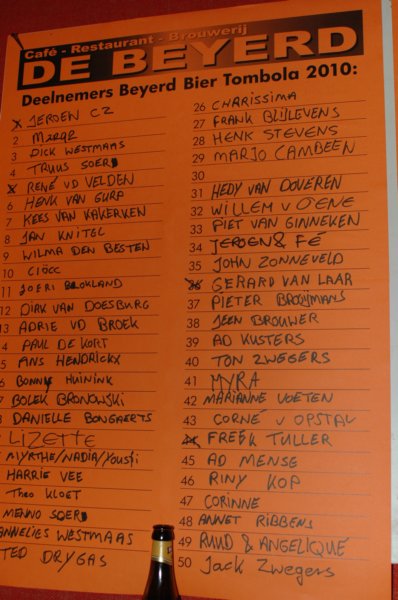 Café - Restaurant - Brouwerij
DE BEYERD
Deelnemers Beyerd Bier Tombola 2010:
JEROEN CZ
2 Marge
3 DICK WESTMAAS
4 TRUUS SOER
RENÉ VD VELDEN
6 HENK VAN GURP
7 KEES VAN KAKERKEN
8 JAN KNITEL
9 WILMA DEN BESTEN
10
11 JOERI BLOKLAND
12 DIRK VAN DOESBURG
13 ADRIE VD BROEK
4 PAUL DE KORT
5 ANS HENDRICKX
6 BONNY HUININK
7 BOLEK BRONOWSKI
8 DANIELLE BONGAERTS
LIZETTE
MYRTHE/NADIA/YOUSFI
HARRIE VEE
THEO KLOET
MENNO SOER
ANNELIES WESTMAAS
TED DRYGAS
26 CHARISSIMA
27 FRANK BLIJLEVENS
28 HENK STEVENS
29 MARJO CAMBEEN
30
31 HEDY VAN DOVEREN
32 WILLEM V OENE
33 PIET VAN GINNEKEN
34 JEROEN & FÉ
35 JOHN ZONNEVELD
36 GERARD VAN LAAR
37 PIETER BROOIJMANS
38 JEEN BROUWER
39 AD KUSTERS
40 TON ZWEGERS
41 MYRA
42 MARIANNE VOETEN
43 CORNÉ V OPSTAL
44 FREEK TULLER
45 AD MENSE
46 RINY KOP
47 CORINNE
48 ANNET RIBBENS
49 RUUD & ANGELIQUE
50 Jack Zwegers